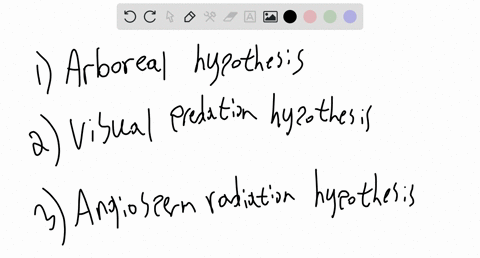 1) Arboreal hypothesis
2) Visual predation hypothesis
3) Angiosperm radiation hypothesis